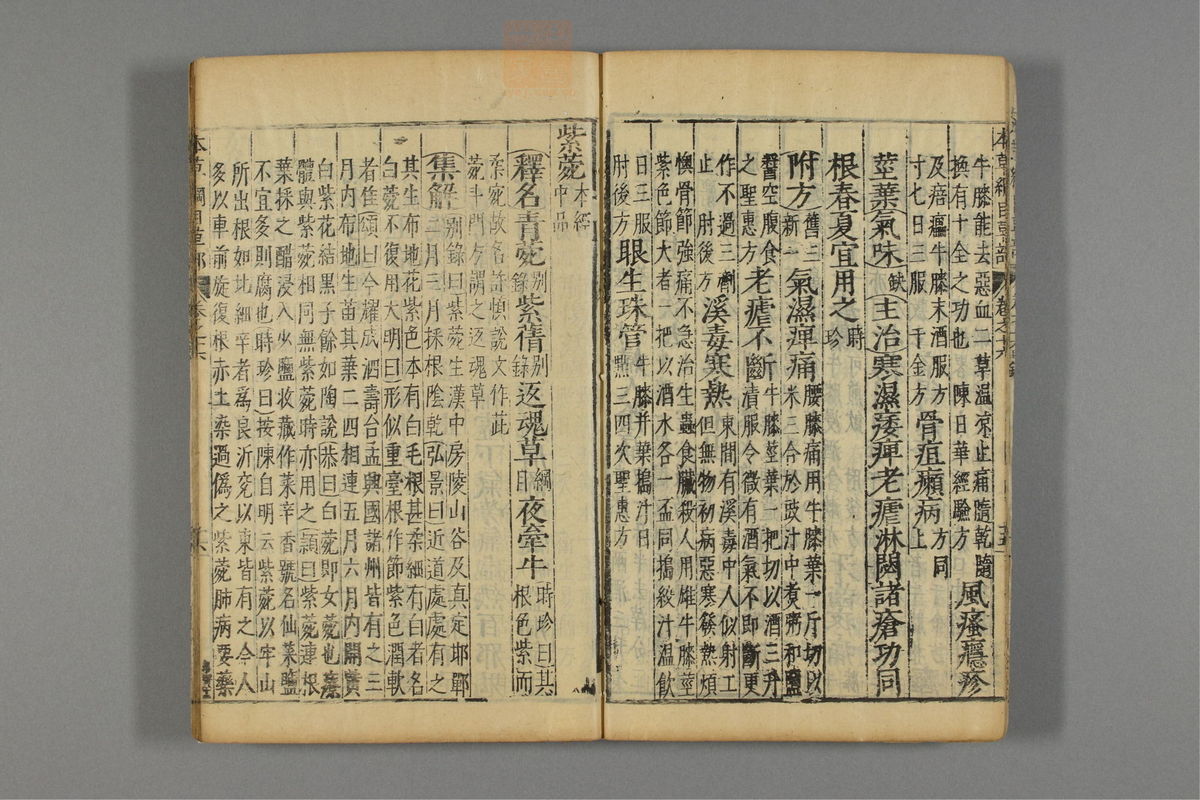 本草綱目草部 卷之十六 五
牛膝能去惡血二草溫涼止痛隨乾隨
換有十全之功也 陳日華經驗方 風瘙癮疹
及痦癗牛膝末酒服方 骨疽癩病 方同
寸七日三服 千金方 上
莖葉氣味缺主治寒濕痿痹老瘧淋閟諸瘡功同
根春夏宜用之 時珍
附方 舊三新一 氣濕痹痛 腰膝痛用牛膝葉一斤切以
米三合於豉汁中煮粥和鹽
醬空腹食 老瘧不斷 牛膝莖葉一把切以酒三升
之聖惠方 漬服令微有酒氣不即斷更
作不過三劑 溪毒寒熱 東間有溪毒中人似射工
止 肘後方 但無物初病惡寒發熱煩
懊骨節強痛不急治生蟲食臟殺人用雄牛膝莖
紫色節大者一把以酒水各一盃同搗絞汁溫飲
日三服 眼生珠管 牛膝并葉搗汁日
肘後方 點三四次聖惠方
紫菀 本經中品
釋名青菀別錄紫蒨別錄返魂草綱目夜牽牛 時珍曰其
根色紫而
柔宛故名許慎說文作茈
菀斗門方謂之返魂草
集解 別錄曰紫菀生漢中房陵山谷及真定邯鄲
二月三月採根陰乾弘景曰近道處處有之
其生布地花紫色本有白毛根甚柔細有白者名
白菀不復用大明曰形似重臺根作節紫色潤軟
者佳頌曰今耀成泗壽台孟興國諸州皆有之三
月內布地生苗其葉二四相連五月六月內開黃
白紫花結黑子餘如陶說恭曰白菀即女菀也療
體與紫菀相同無紫菀時亦用之頴曰紫菀連根
葉採之醋浸入少鹽收藏作菜辛香號名仙菜鹽
不宜多則腐也時珍曰按陳自明云紫菀以牢山
所出根如北細辛者為良沂兗以東皆有之今人
多以車前旋復根赤土染過偽之紫菀肺病要藥
本草綱目草部 卷之十六 六